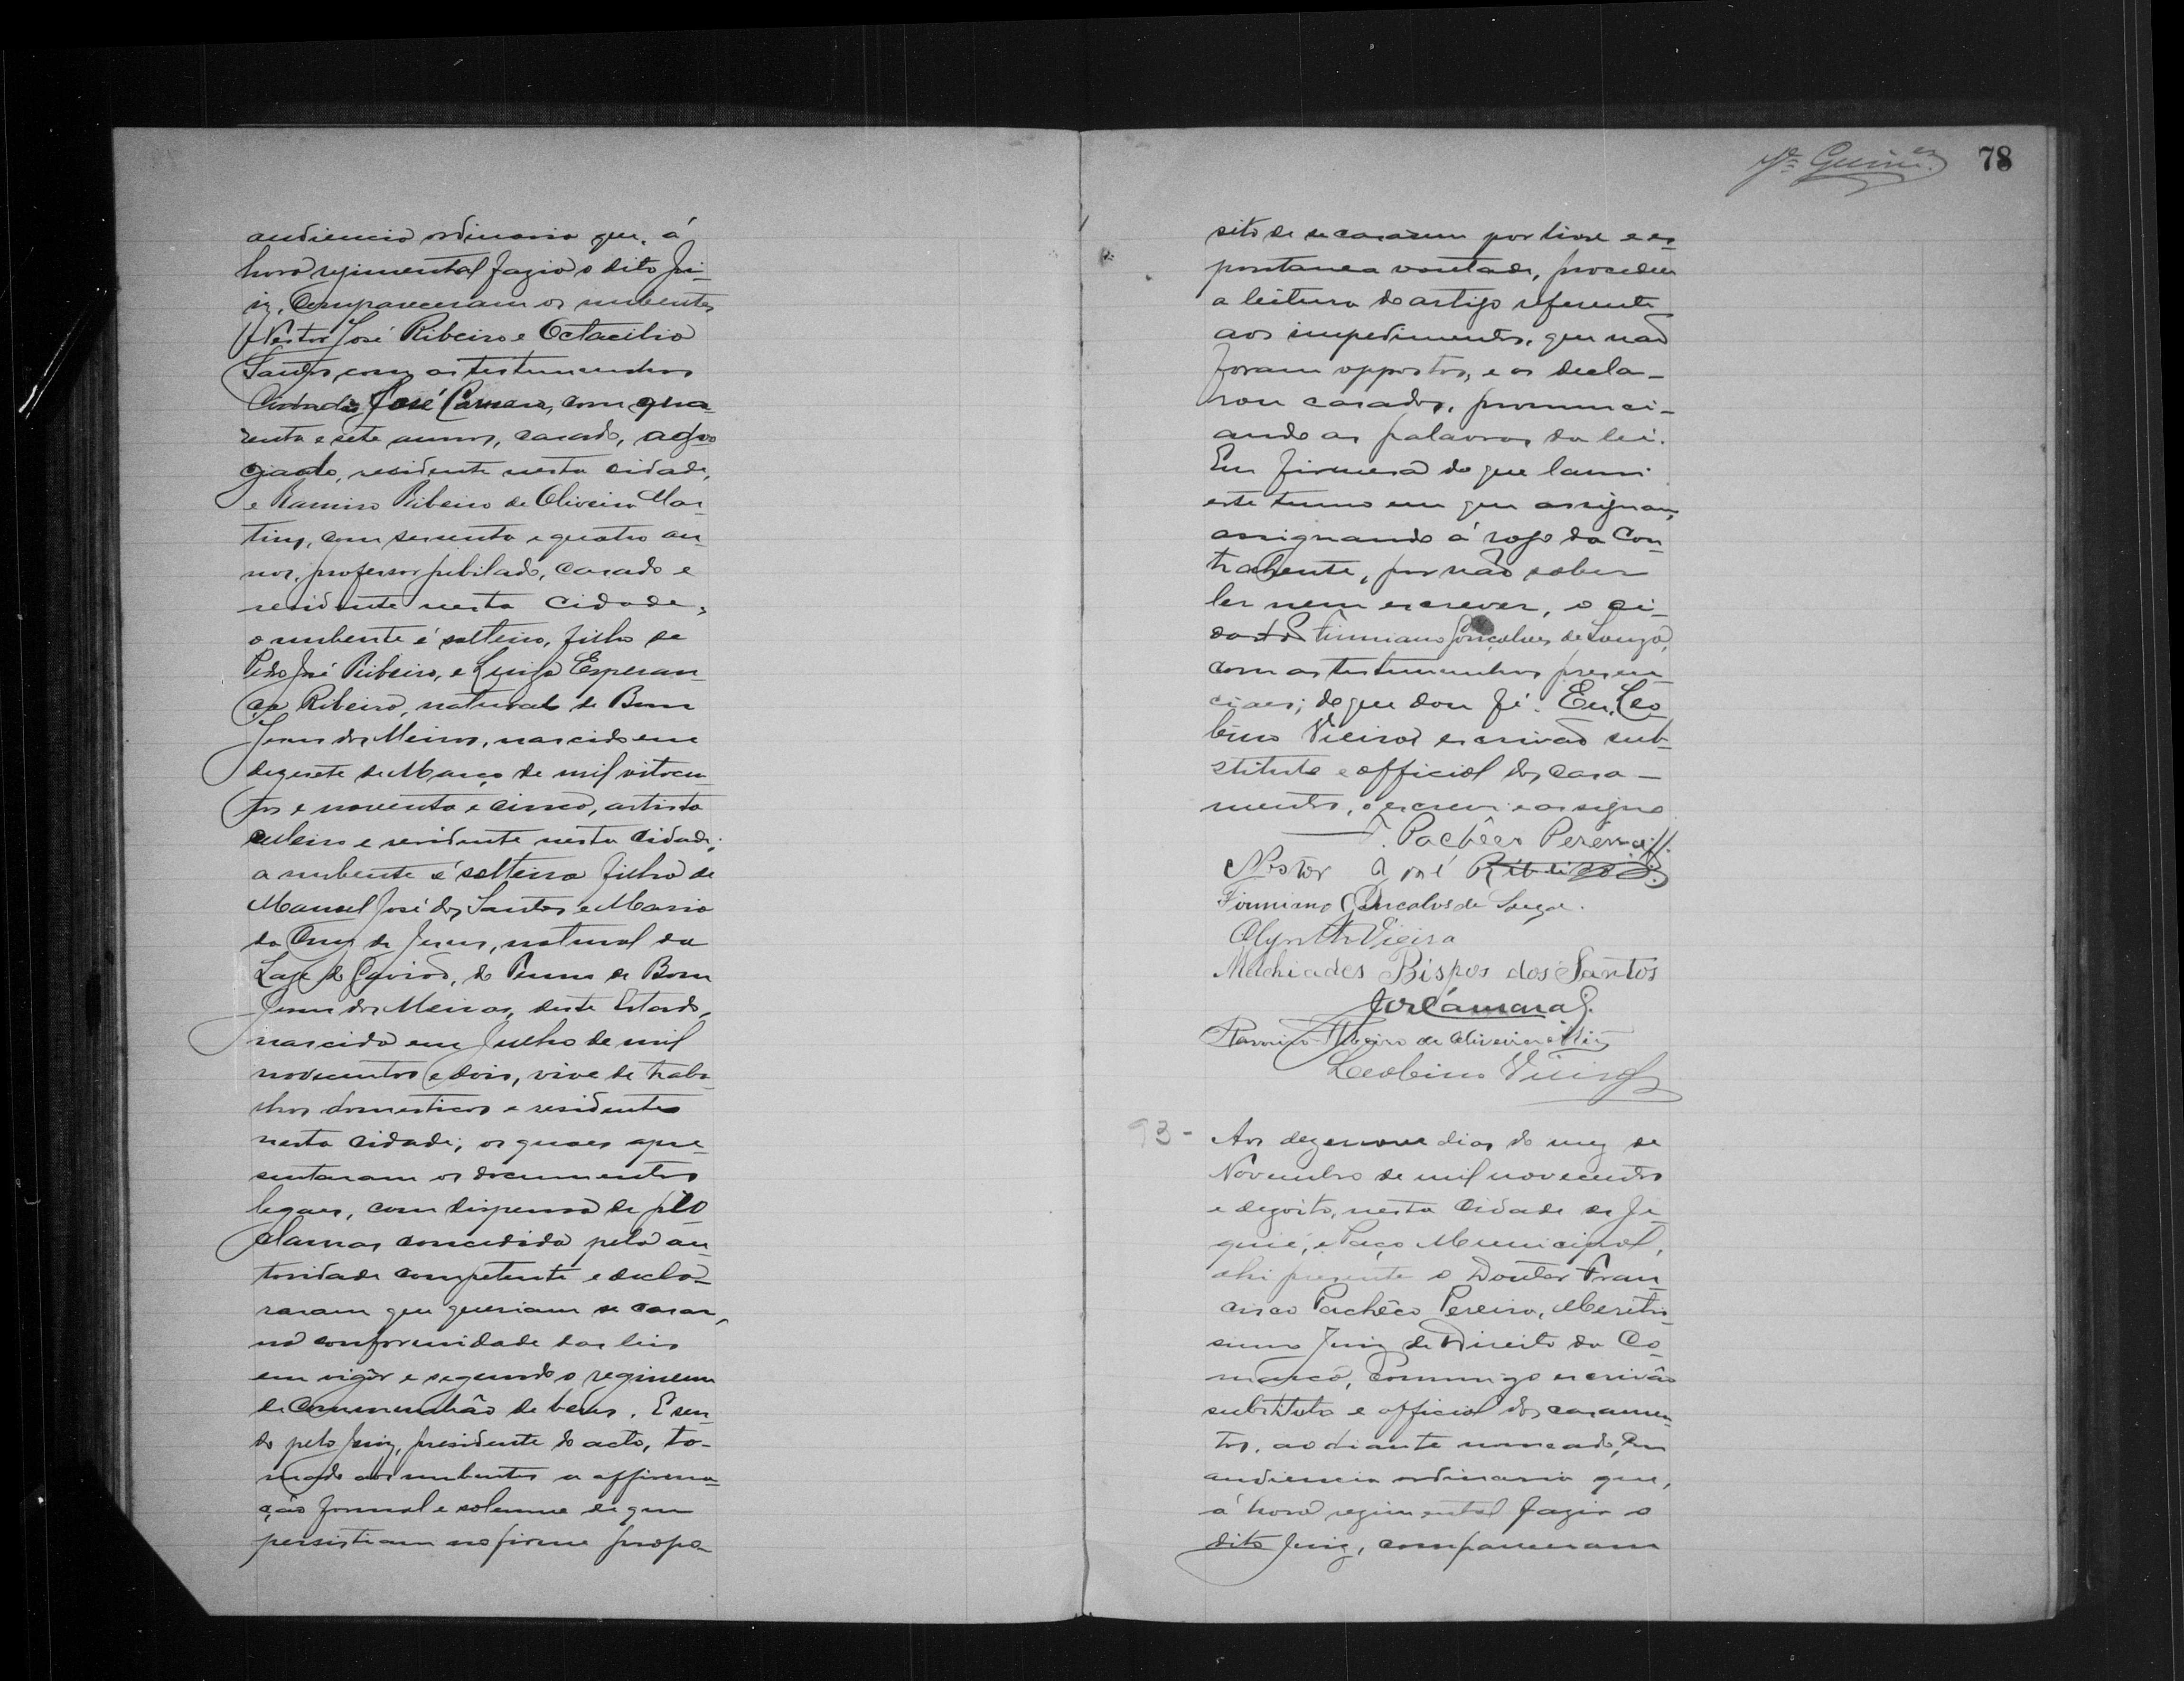 audiencia ordinaria que, á
hora regimental fazia o dito Ju-
iz, Compareceram os nubentes
Nestor José Ribeiro e Octacilia
Santos, com as testemunhas
José Camara, com qua-
renta e sete annos, casado,
residente nesta cidade,
e Ramiro Ribeiro de Oliveira Mar-
tins, com sessenta e quatro an-
nos, professor jubilado, casado e
residente nesta Cidade,
o nubente é solteiro, filho de
Pedro José Ribeiro, e Luiza Esperan-
ça Ribeiro, natural de Bom
Jesus dos Meiras, nascido em
dezesete de Março de mil oitocen-
tos e noventa e cinco, artista
e residente nesta Cidade;
a nubente é solteira filha de
Manuel José dos Santos e Maria
da Cruz de Jesus, natural da
Lage do Gavião, do Termo de Bom
Jesus dos Meiras, deste Estado,
nascida em Julho de mil
novecentos e dois, vive de traba-
lhos domesticos e residentes
nesta Cidade; os quaes apre-
sentaram os documentos
legaes, com dispensa de pro-
clamas concedida pela au-
toridade competente e decla-
raram que queriam se casar,
na conformidade das leis
em vigôr e segundo o regimem
de Communhão de bens. E sen-
do pelo Juiz, presidente do acto, to-
mado aos nubentes a affirma-
ção formal e solemne de que
persistiam no firme propo-
78
sito de se casarem por livre e es-
pontanea vontade, procedeu
a leitura do artigo referente
aos impedimentos, que não
foram oppostos, e os decla-
rou casados, pronunci-
ando as palavras da lei.
Em firmesa do que lavrei
este termo em que assignam,
assignando á rogo da Con-
trahente, por não saber
ler nem escrever, o ci-
dadão Firmiano Gonçalves de Souza,
com as testemunhas presen-
ciaes; do que dou fé. Eu, Leo-
bino Vieira escrivão sub-
stituto e official dos casa-
mentos, o escrevi e assigno
F. Pachêco Pereira
Nestor José Ribeiro
Firmiano Goncalves de Souza.
Olyntho Vieira
Melchiades Bispos dos Santos
José Câmara
Ramiro Ribeiro de Oliveira Mis
Leobino Vieira
93-
Aos dezenove dias do mez de
Novembro de mil novecentos
e dezoito, nesta Cidade de Je-
quié, e Paço Municipal,
ahi presente o Doutor Fran-
cisco Pachêco Pereira, Meritis-
simo Juiz de Direito da Co-
marca, Commigo escrivão
substituto e official dos casamen-
tos, ao diante nomeado, em
audiencia ordinaria que,
á hora regimental fazia o
dito Juiz, compareceram